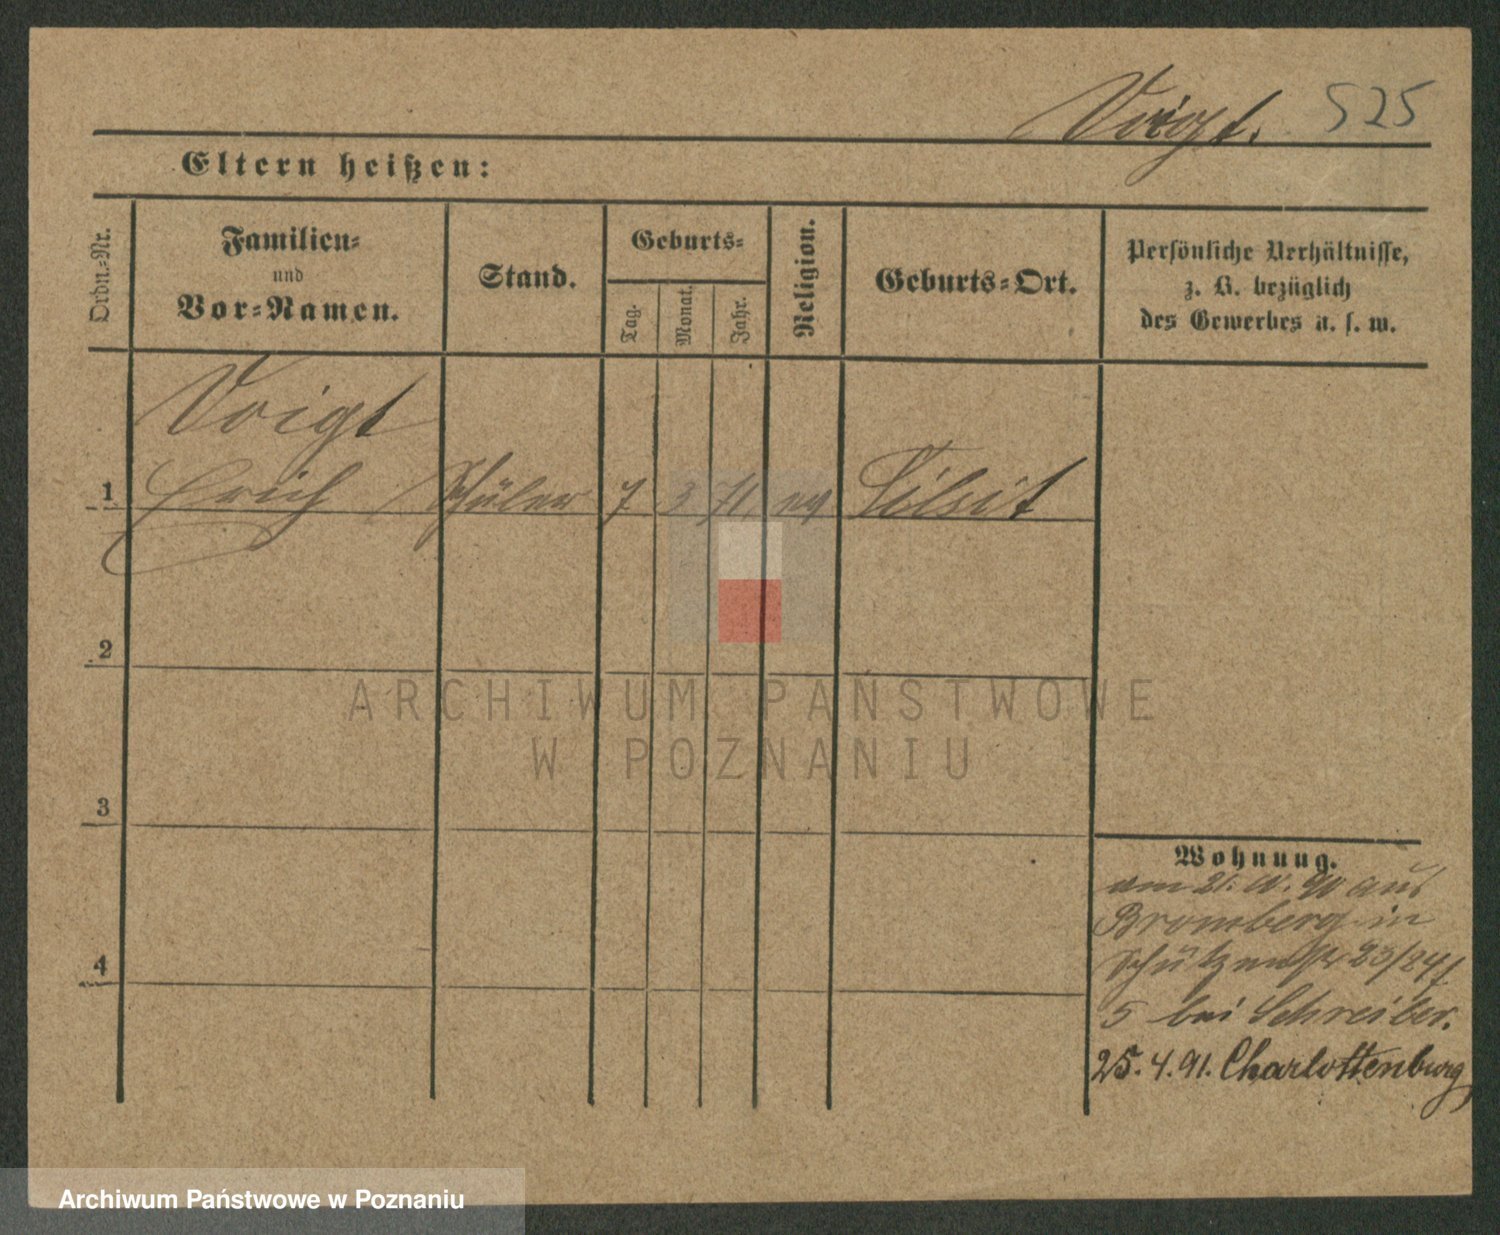 Voigt. 525
Eltern heißen:
Ordn.-Nr.
Familien-
und
Vor-Namen.
Stand.
Geburts-
Tag.
Monat.
Jahr.
Religion.
Geburts-Ort.
Persönliche Verhältnisse,
z. B. bezüglich
des Gewerbes u. s. w.
Voigt
1 Erich Schüler 7 3 71, ev Tilsit
2
3
4
Wohnung.
am 21. 10. 90 aus
Bromberg in
Schützenstr 23/24
5 bei Schreiber.
25. 4. 91. Charlottenburg
ARCHIWUM PAŃSTWOWE
W POZNANIU
Archiwum Państwowe w Poznaniu